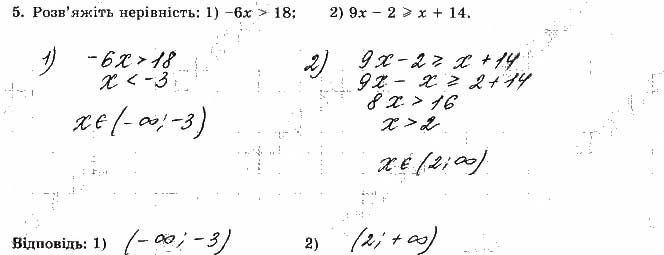 5. Розв'яжіть нерівність: 1) –6x > 18; 2) 9x – 2 ⩾ x + 14.
1) -6x > 18
x < -3
x ∈ (-∞; -3)
2) 9x - 2 ≥ x + 14
9x - x ≥ 2 + 14
8x > 16
x > 2
x ∈ (2; ∞)
Відповідь: 1) (-∞; -3) 2) (2; +∞)